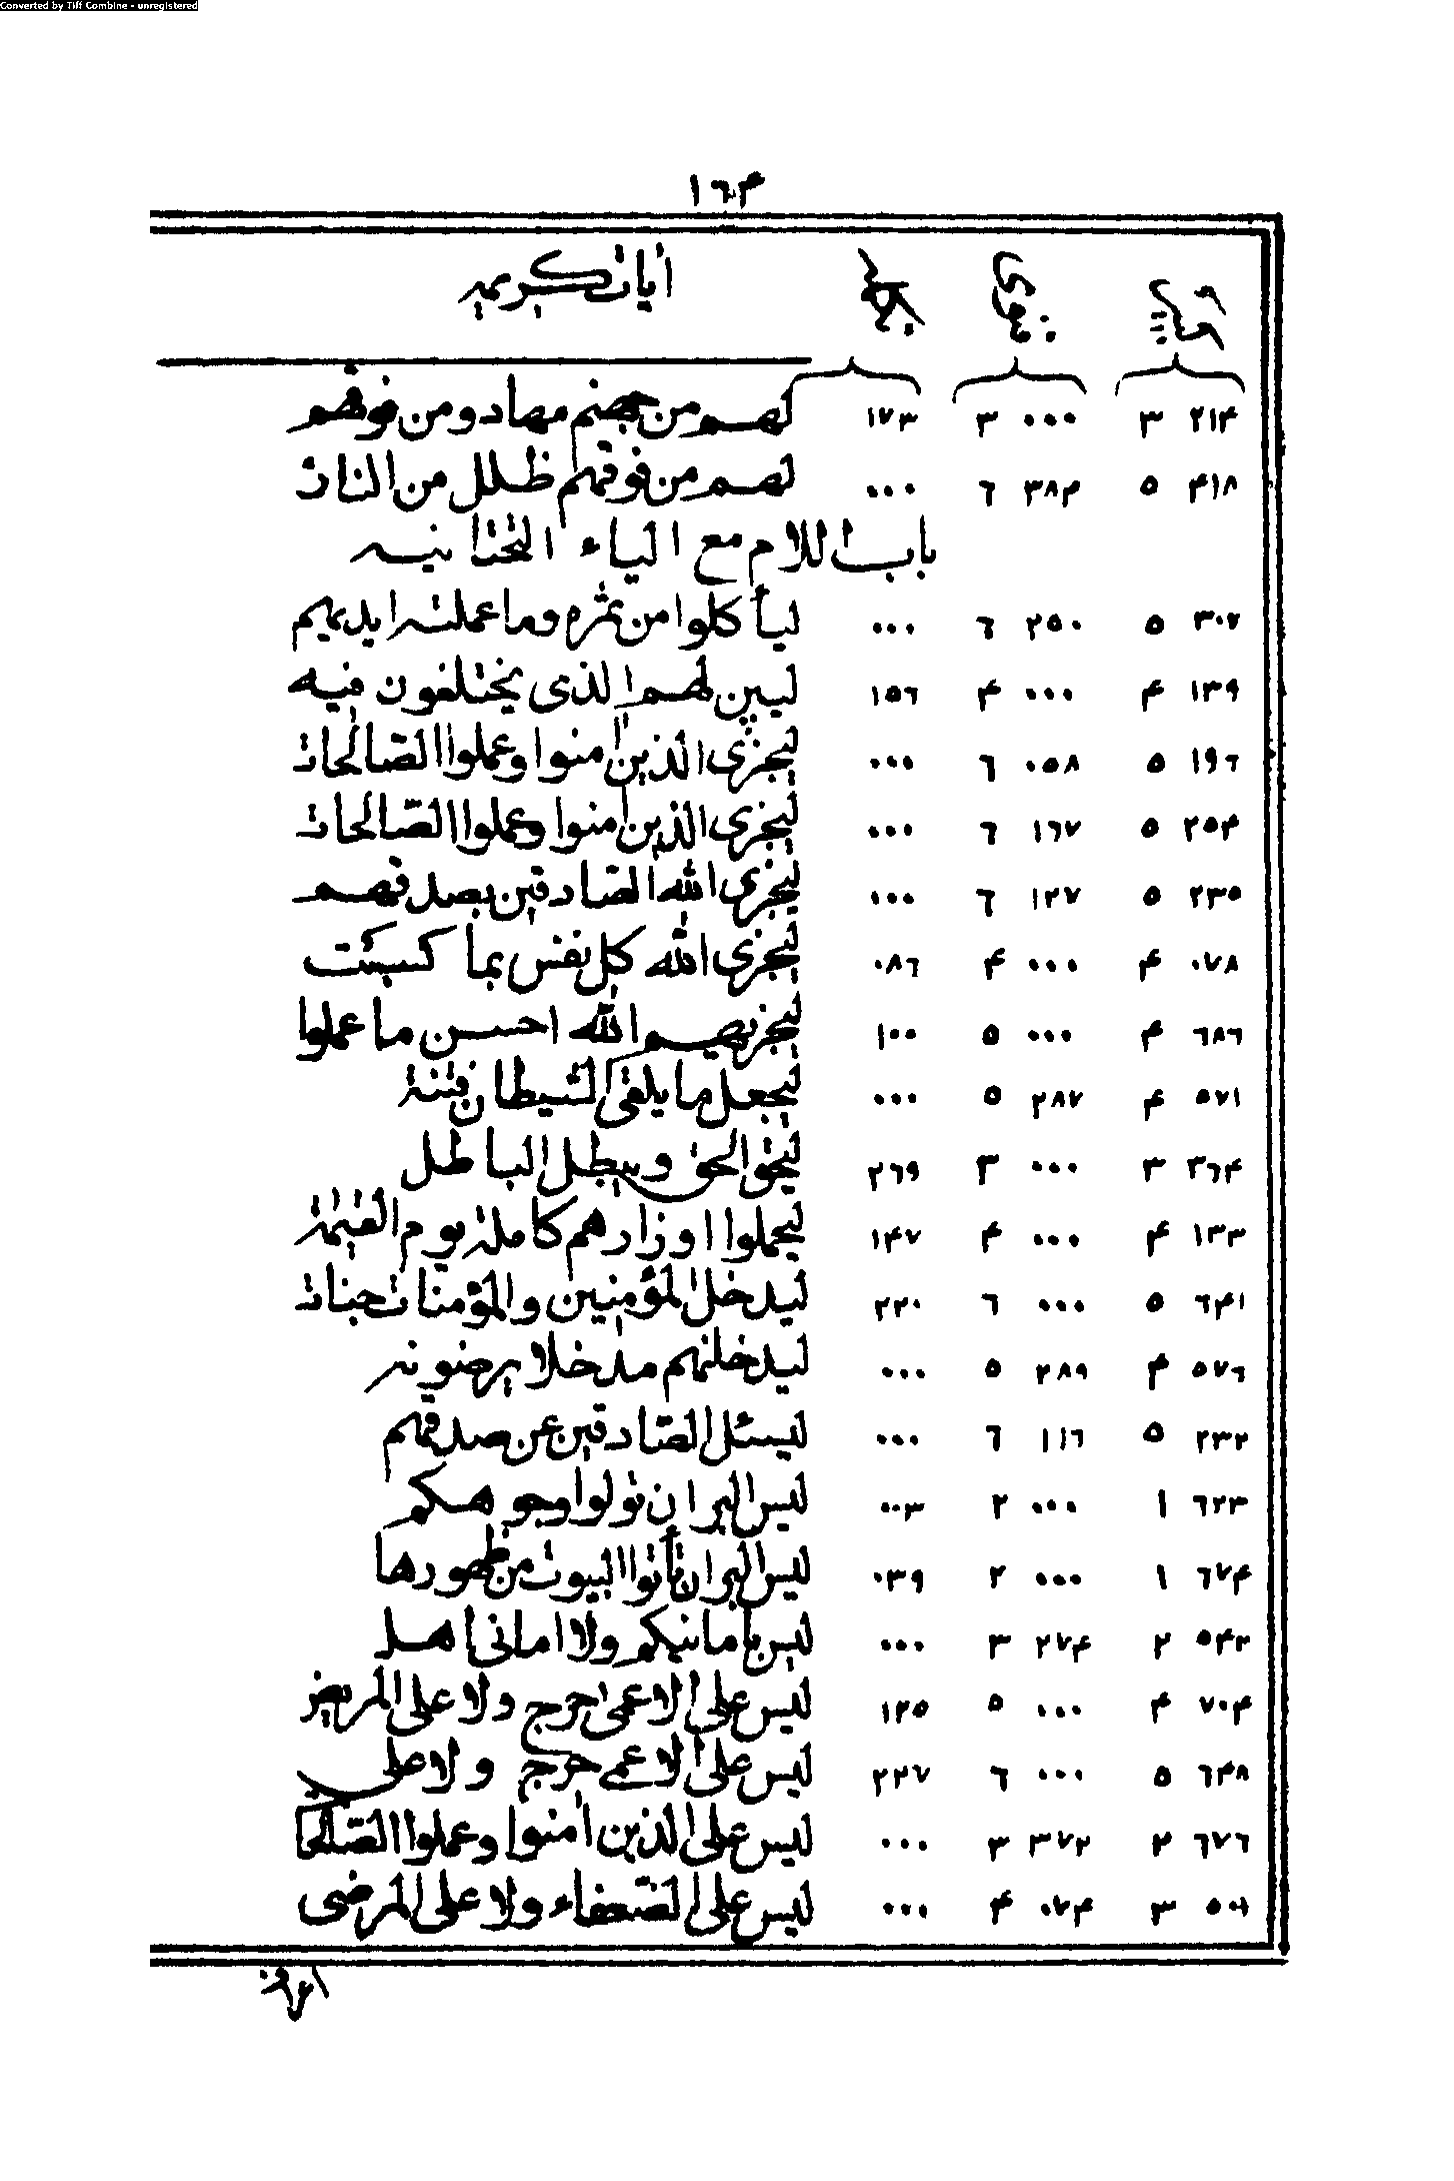 Converted by Tiff Combine - unregistered
١٦۴
آيات كريمه
٢١۴ ٣ ٠٠٠ ٣ ١٧٣ لهم من جهنم مهاد ومن فوقهم
۴١٨ ٥ ٣٨۴ ٦ ٠٠٠ لهم من فوقهم ظلل من النار
باب اللام مع الياء التحتانيه
٣٠٧ ٥ ٢٥٠ ٦ ٠٠٠ ليأكلوا من ثمره وما عملته ايديهم
١٣٩ ۴ ٠٠٠ ۴ ١٥٦ ليبين لهم الذى يختلفون فيه
١٩٦ ٥ ٠٥٨ ٦ ٠٠٠ ليجزى الذين امنوا وعملوا الصالحات
٢٥۴ ٥ ١٦٧ ٦ ٠٠٠ ليجزى الذين امنوا وعملوا الصالحات
٢٣٥ ٥ ١٢٧ ٦ ٠٠٠ ليجزى الله الصادقين بصدقهم
٠٧٨ ۴ ٠٠٠ ۴ ٠٨٦ ليجزى الله كل نفس بما كسبت
٦٨٦ ۴ ٠٠٠ ٥ ١٠٠ ليجزيهم الله احسن ما عملوا
٥٧١ ۴ ٢٨٧ ٥ ٠٠٠ ليجعل ما يلقى الشيطان فتنة
٣٦۴ ٣ ٠٠٠ ٣ ٢٦٩ ليحق الحق ويبطل الباطل
١٣٣ ۴ ٠٠٠ ۴ ١۴٧ ليحملوا اوزارهم كاملة يوم القيمة
٦۴١ ٥ ٠٠٠ ٦ ٢٢٠ ليدخل المؤمنين والمؤمنات جنات
٥٧٦ ۴ ٢٨٩ ٥ ٠٠٠ ليدخلنهم مدخلا يرضونه
٢٣٢ ٥ ١١٦ ٦ ٠٠٠ ليسئل الصادقين عن صدقهم
٦٢٣ ١ ٠٠٠ ٢ ٠٠٣ ليس البر ان تولوا وجوهكم
٦٧۴ ١ ٠٠٠ ٢ ٠٣٩ ليس البر ان تأتوا البيوت من ظهورها
٥۴٢ ٢ ٢٧۴ ٣ ٠٠٠ ليس بأمانيكم ولا امانى أهل
٧٠۴ ۴ ٠٠٠ ٥ ١٢٥ ليس على الاعمى حرج ولا على المريض
٦۴٨ ٥ ٠٠٠ ٦ ٢٢٧ ليس على الاعمى حرج ولا على
٦٧٦ ٢ ٣٧٢ ٣ ٠٠٠ ليس على الذين امنوا وعملوا الصالحا
٥٠١ ٣ ٠٧۴ ۴ ٠٠٠ ليس على الضعفاء ولا على المرضى